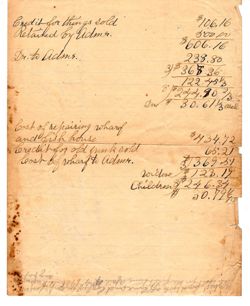 Credit for things sold $106.16
Retained by Admr. 500.00
$606.16
Dr. to Admr. 238.80
3) 367.36
122.45 1/3
244.90 2/3
30.61 1/3
Cost of repairing wharf
and fish house $434.72
Credit for old junk sold 65.21
Cost of wharf to Admr. $369.51
Widow $123.17
Children $246.34